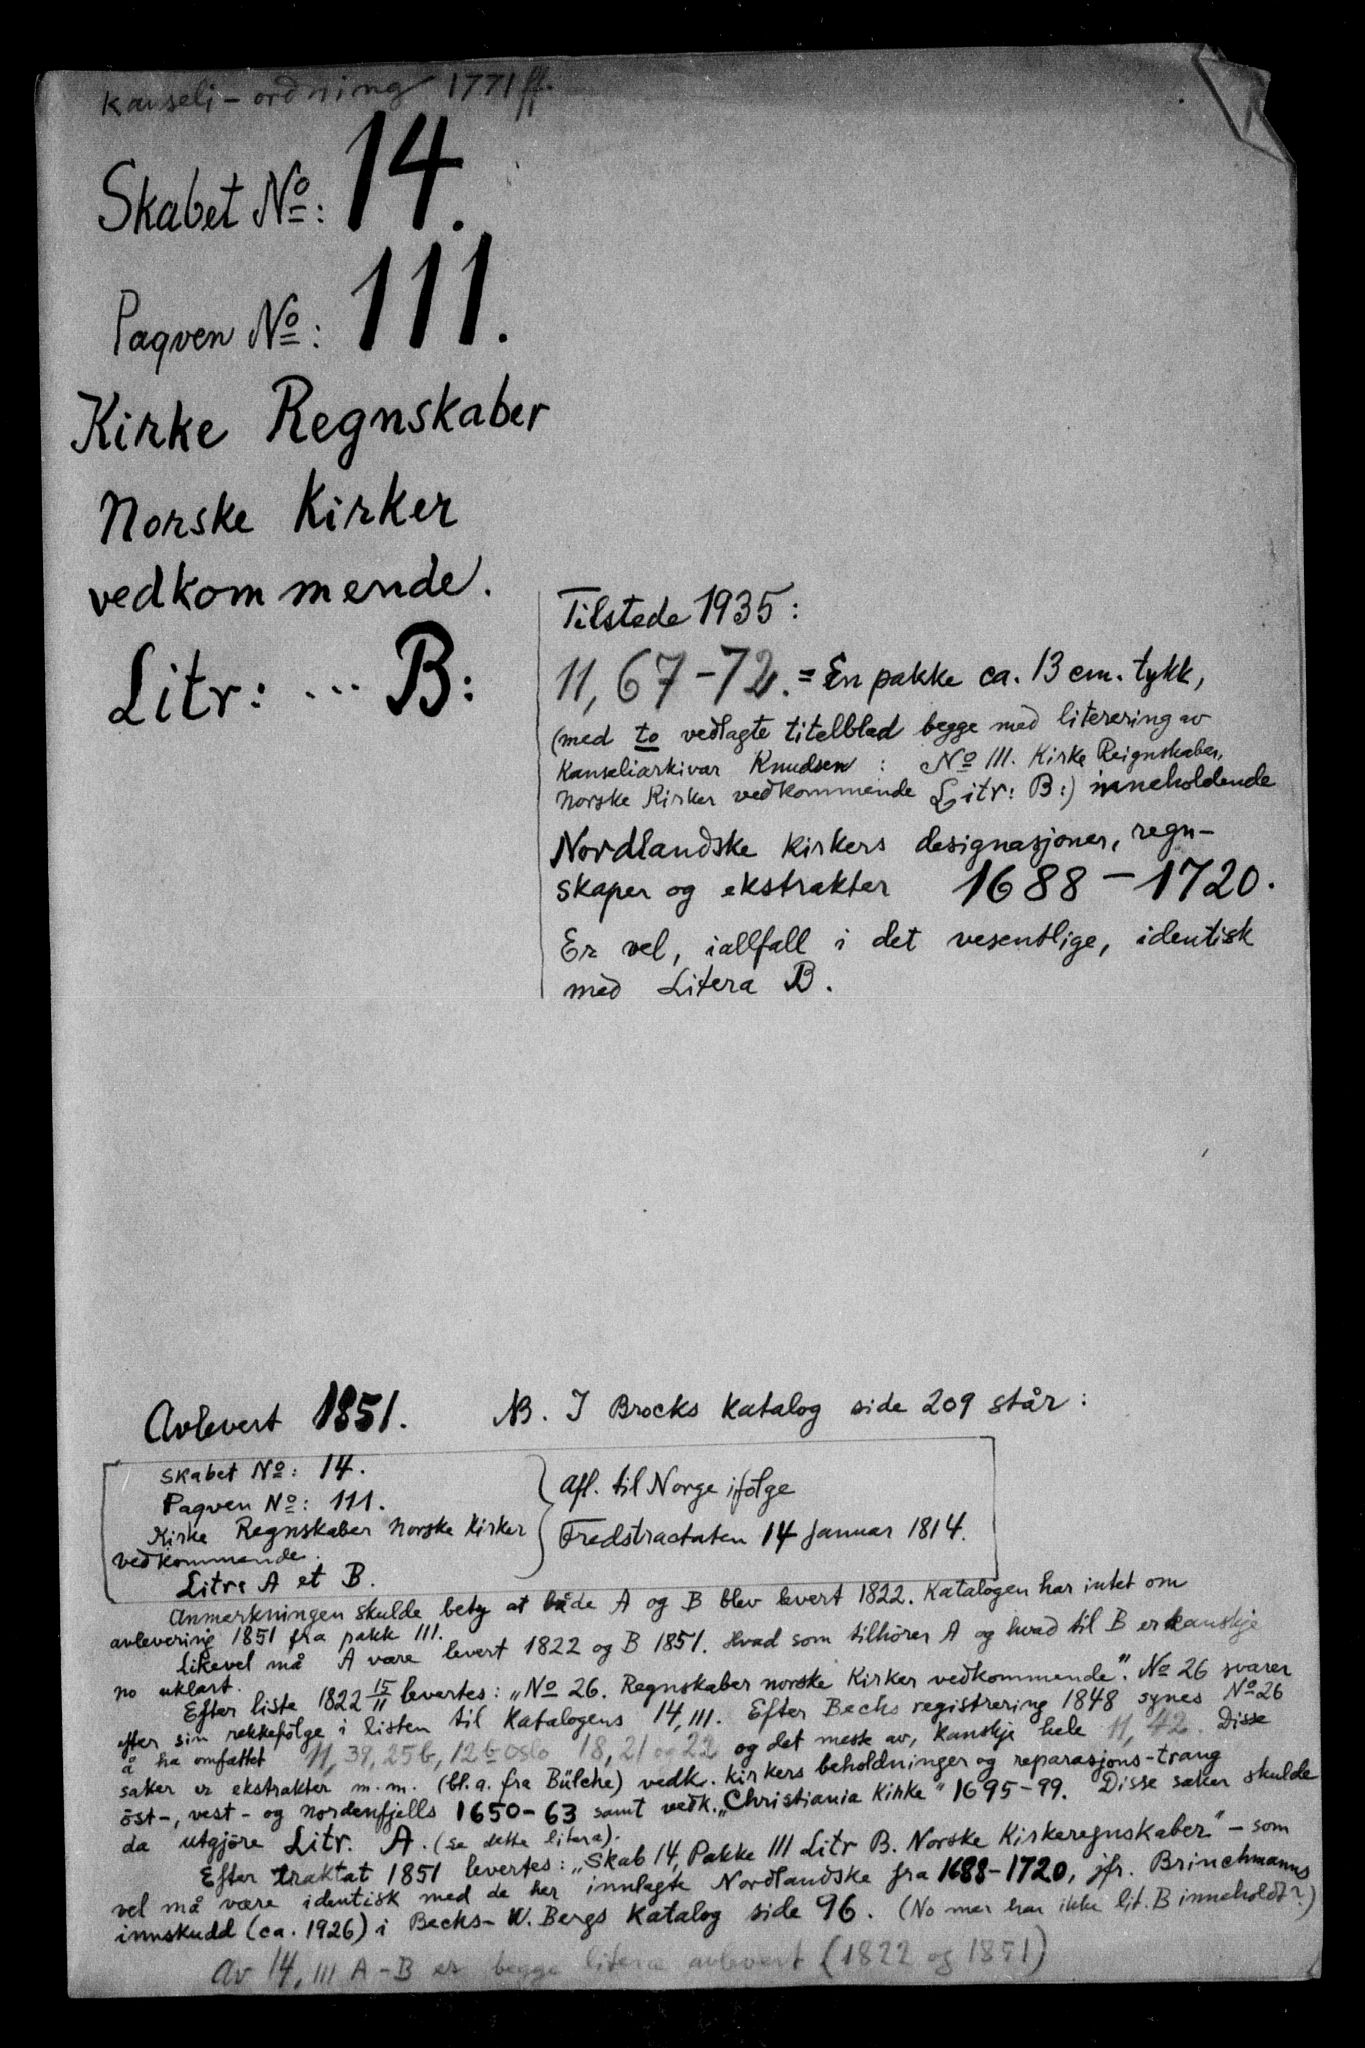 Kanseli-ordning 1771 ff.
Skabet No: 14.
Paqven No: 111.
Kirke Regnskaber
Norske Kirker
vedkommende.
Litr: ... B:
Tilstede 1935:
11, 67-72. = En pakke ca. 13 cm. tykk,
(med to vedlagte titelblad begge med literering av
Kanseliarkivar Knudsen: No 111. Kirke Reignskaber,
Norske Kirker vedkommende Litr: B:) inneholdende
Nordlandske kirkers designasjoner, regn-
skaper og ekstrakter 1688-1720.
Er vel, iallfall i det vesentlige, identisk
med Litera B.
Avlevert 1851. NB. I Brocks Katalog side 209 står:
Skabet No: 14.
Paqven No: 111.
Kirke Regnskaber Norske Kirker
vedkommende.
Litra A et B.
afl. til Norge ifølge
Fredstractaten 14 Januar 1814.
Anmerkningen skulde bety at både A og B blev levert 1822. Katalogen har intet om
avlevering 1851 fra pakk 111.
Likevel må A være levert 1822 og B 1851. Hvad som tilhører A og hvad til B er kanskje
no uklart.
Efter liste 1822 15/11 levertes: „No 26. Regnskaber norske Kirker vedkommende". No 26 svarer
efter sin rekkefølge i listen til Katalogens 14, 111. Efter Bechs registrering 1848 synes No 26
å ha omfattet 11, 39, 25b, 12b Oslo 18, 21 og 22 og det meste av, kanskje hele 11, 42. Disse
saker er ekstrakter m.m. (bl.a. fra Bülche) vedk. kirkers beholdninger og reparasjons-trang
öst-, vest- og nordenfjells 1650-63 samt vedk. „Christiania Kirke" 1695-99. Disse saker skulde
da utgjøre Litr. A. (se dette litera).
Efter traktat 1851 levertes: „Skab 14, Pakke 111 Litr B. Norske Kirkeregnskaber" - som
vel må være identisk med de her innlagte Nordlandske fra 1688-1720, jfr. Brinchmanns
innskudd (ca. 1926) i Bechs-W. Bergs Katalog side 96. (No mer har ikke lit. B inneholdt?)
Av 14, 111 A-B er begge litera avlevert (1822 og 1851)